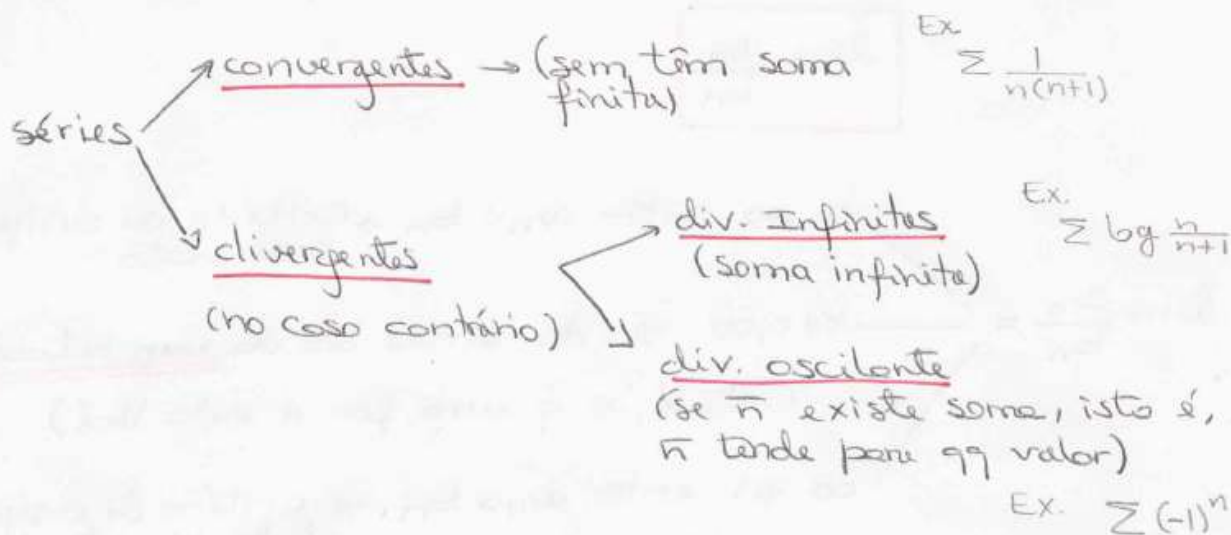 Ex.
convergentes → (sem têm soma
finita)
Σ 1/n(n+1)
séries
divergentes
(no caso contrário)
div. Infinitas
(soma infinita)
Ex.
Σ log n/n+1
div. oscilante
(se n̄ existe soma, isto é,
n̄ tende para qq valor)
Ex. Σ (-1)ⁿ